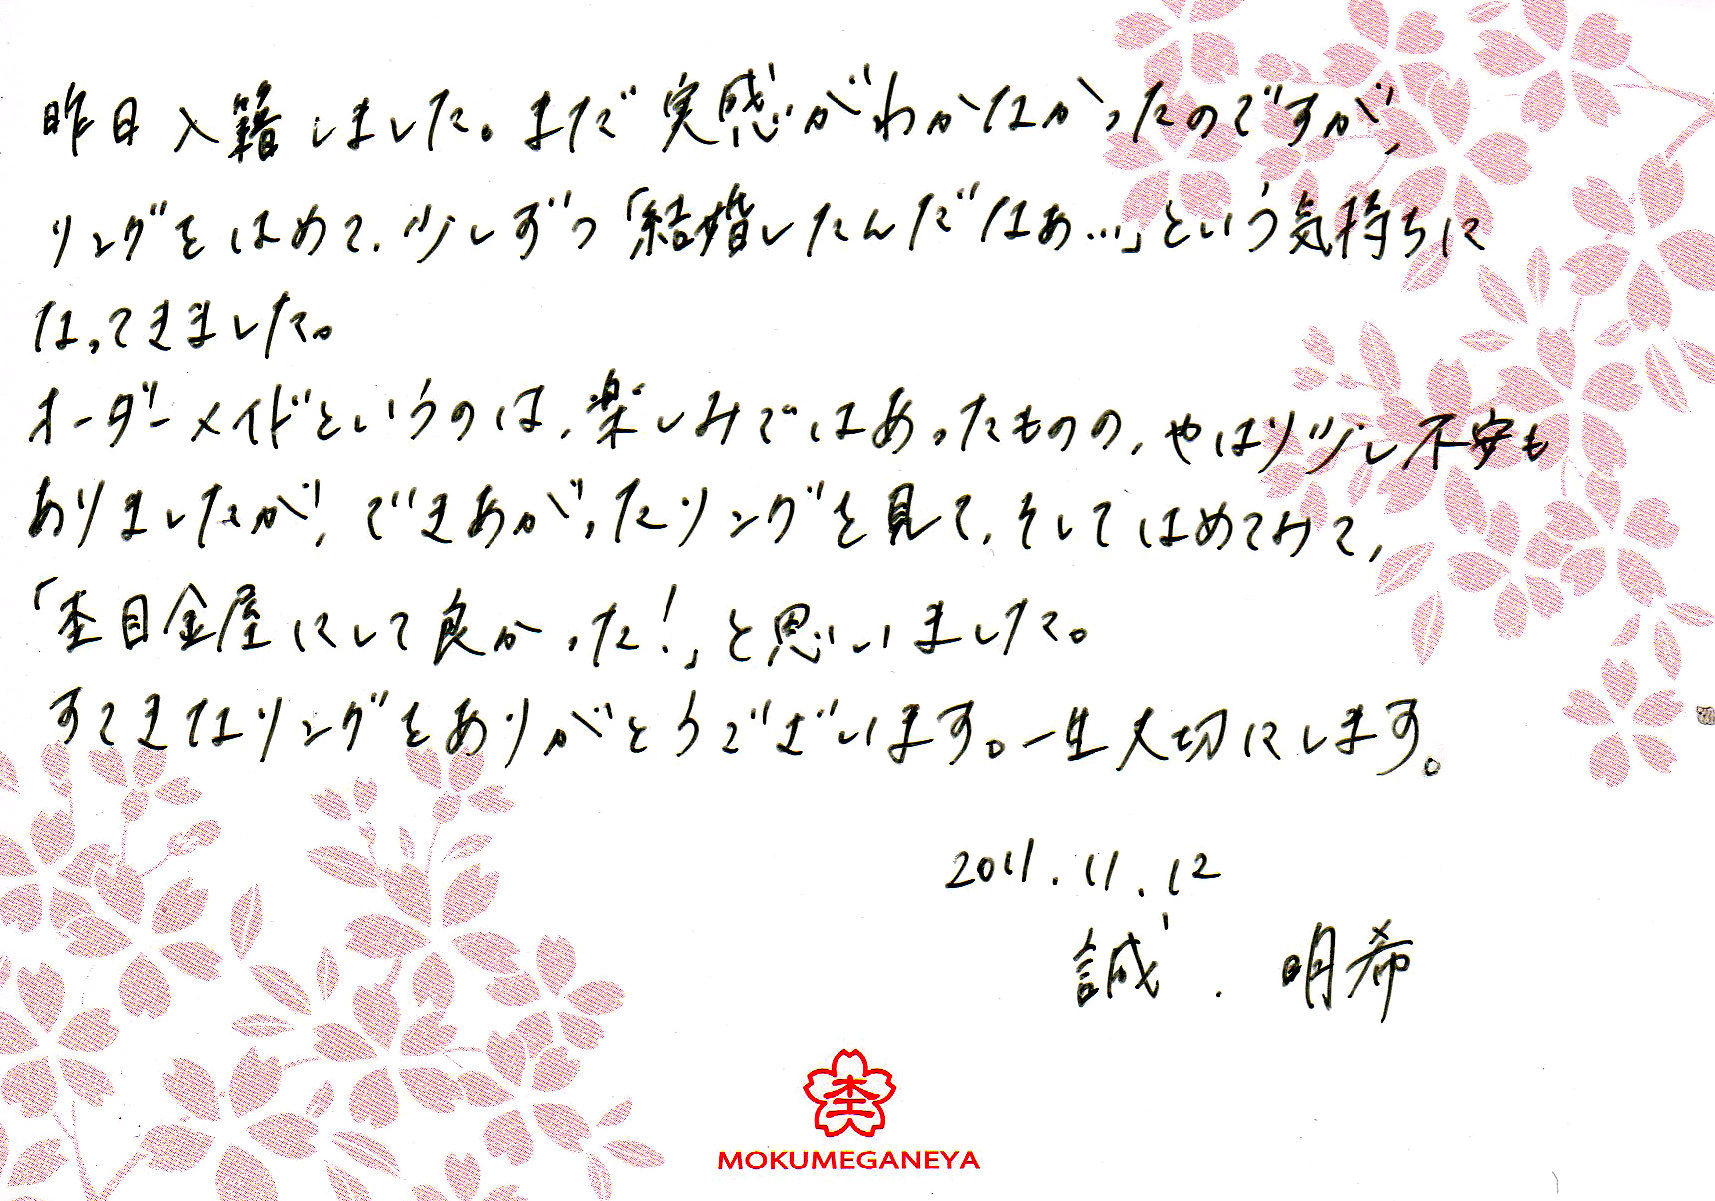 昨日入籍しました。まだ実感がわかなかったのですが、
リングをはめて、少しずつ「結婚したんだなぁ…」という気持ちに
なってきました。
オーダーメイドというのは、楽しみではあったものの、やはり少し不安も
ありましたが、できあがったリングを見て、そしてはめてみて、
「杢目金屋にして良かった！」と思いました。
すてきなリングをありがとうございます。一生大切にします。
2011.11.12
誠．明希
杢
MOKUMEGANEYA